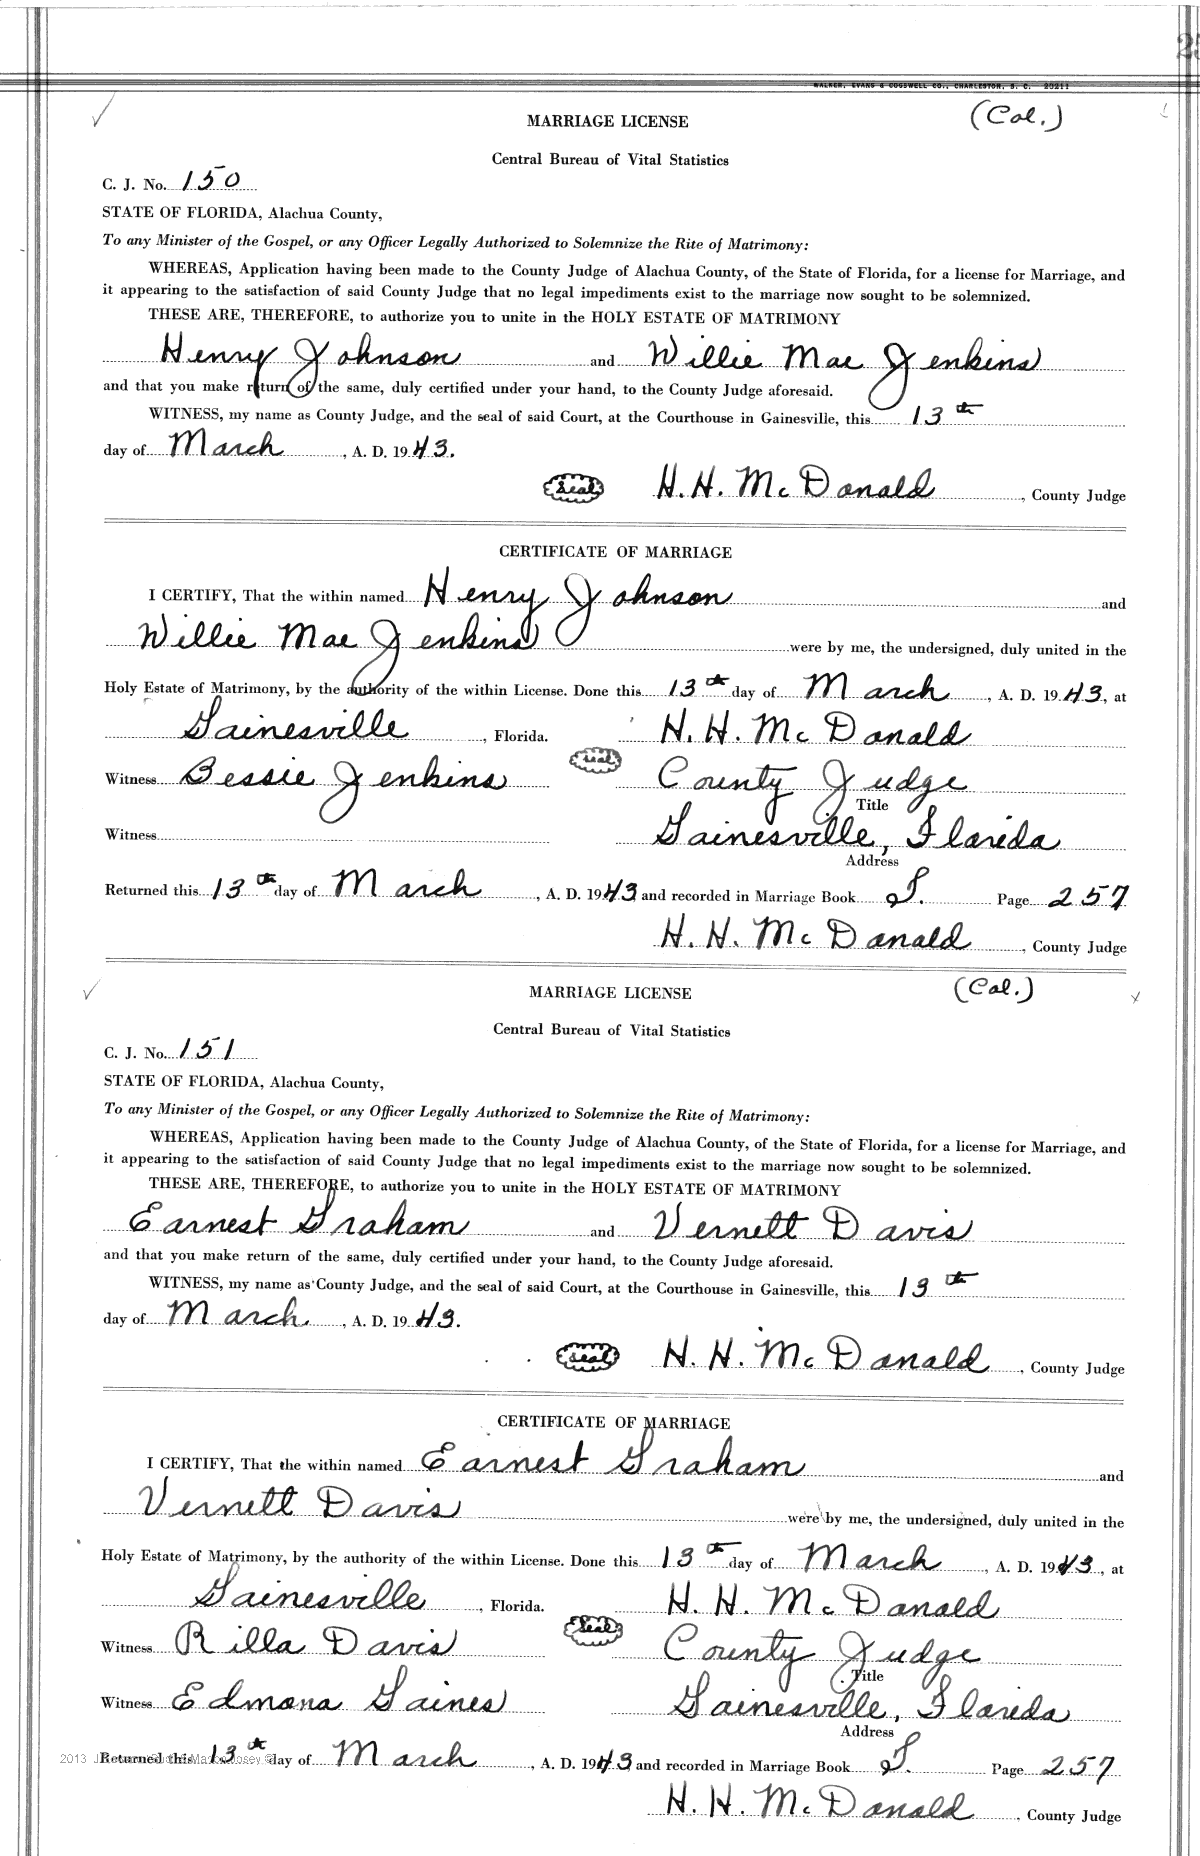 WALKER, EVANS & COGSWELL CO., CHARLESTON, S. C. 20211
MARRIAGE LICENSE (Col.)
Central Bureau of Vital Statistics
C. J. No. 150
STATE OF FLORIDA, Alachua County,
To any Minister of the Gospel, or any Officer Legally Authorized to Solemnize the Rite of Matrimony:
WHEREAS, Application having been made to the County Judge of Alachua County, of the State of Florida, for a license for Marriage, and
it appearing to the satisfaction of said County Judge that no legal impediments exist to the marriage now sought to be solemnized.
THESE ARE, THEREFORE, to authorize you to unite in the HOLY ESTATE OF MATRIMONY
Henry Johnson and Willie Mae Jenkins
and that you make return of the same, duly certified under your hand, to the County Judge aforesaid.
WITNESS, my name as County Judge, and the seal of said Court, at the Courthouse in Gainesville, this 13th
day of March, A. D. 1943.
seal H. H. McDonald, County Judge
CERTIFICATE OF MARRIAGE
I CERTIFY, That the within named Henry Johnson and
Willie Mae Jenkins were by me, the undersigned, duly united in the
Holy Estate of Matrimony, by the authority of the within License. Done this 13th day of March, A. D. 1943, at
Gainesville, Florida. H. H. McDonald
seal
Witness Bessie Jenkins County Judge
Title
Witness Gainesville, Florida
Address
Returned this 13th day of March, A. D. 1943 and recorded in Marriage Book S. Page 257
H. H. McDonald, County Judge
MARRIAGE LICENSE (Col.)
Central Bureau of Vital Statistics
C. J. No. 151
STATE OF FLORIDA, Alachua County,
To any Minister of the Gospel, or any Officer Legally Authorized to Solemnize the Rite of Matrimony:
WHEREAS, Application having been made to the County Judge of Alachua County, of the State of Florida, for a license for Marriage, and
it appearing to the satisfaction of said County Judge that no legal impediments exist to the marriage now sought to be solemnized.
THESE ARE, THEREFORE, to authorize you to unite in the HOLY ESTATE OF MATRIMONY
Earnest Graham and Vernett Davis
and that you make return of the same, duly certified under your hand, to the County Judge aforesaid.
WITNESS, my name as County Judge, and the seal of said Court, at the Courthouse in Gainesville, this 13th
day of March, A. D. 1943.
seal H. H. McDonald, County Judge
CERTIFICATE OF MARRIAGE
I CERTIFY, That the within named Earnest Graham and
Vernett Davis were by me, the undersigned, duly united in the
Holy Estate of Matrimony, by the authority of the within License. Done this 13th day of March, A. D. 1943, at
Gainesville, Florida. H. H. McDonald
seal
Witness Rilla Davis County Judge
Title
Witness Edmona Gaines Gainesville, Florida
Address
Returned this 13th day of March, A. D. 1943 and recorded in Marriage Book S. Page 257
H. H. McDonald, County Judge